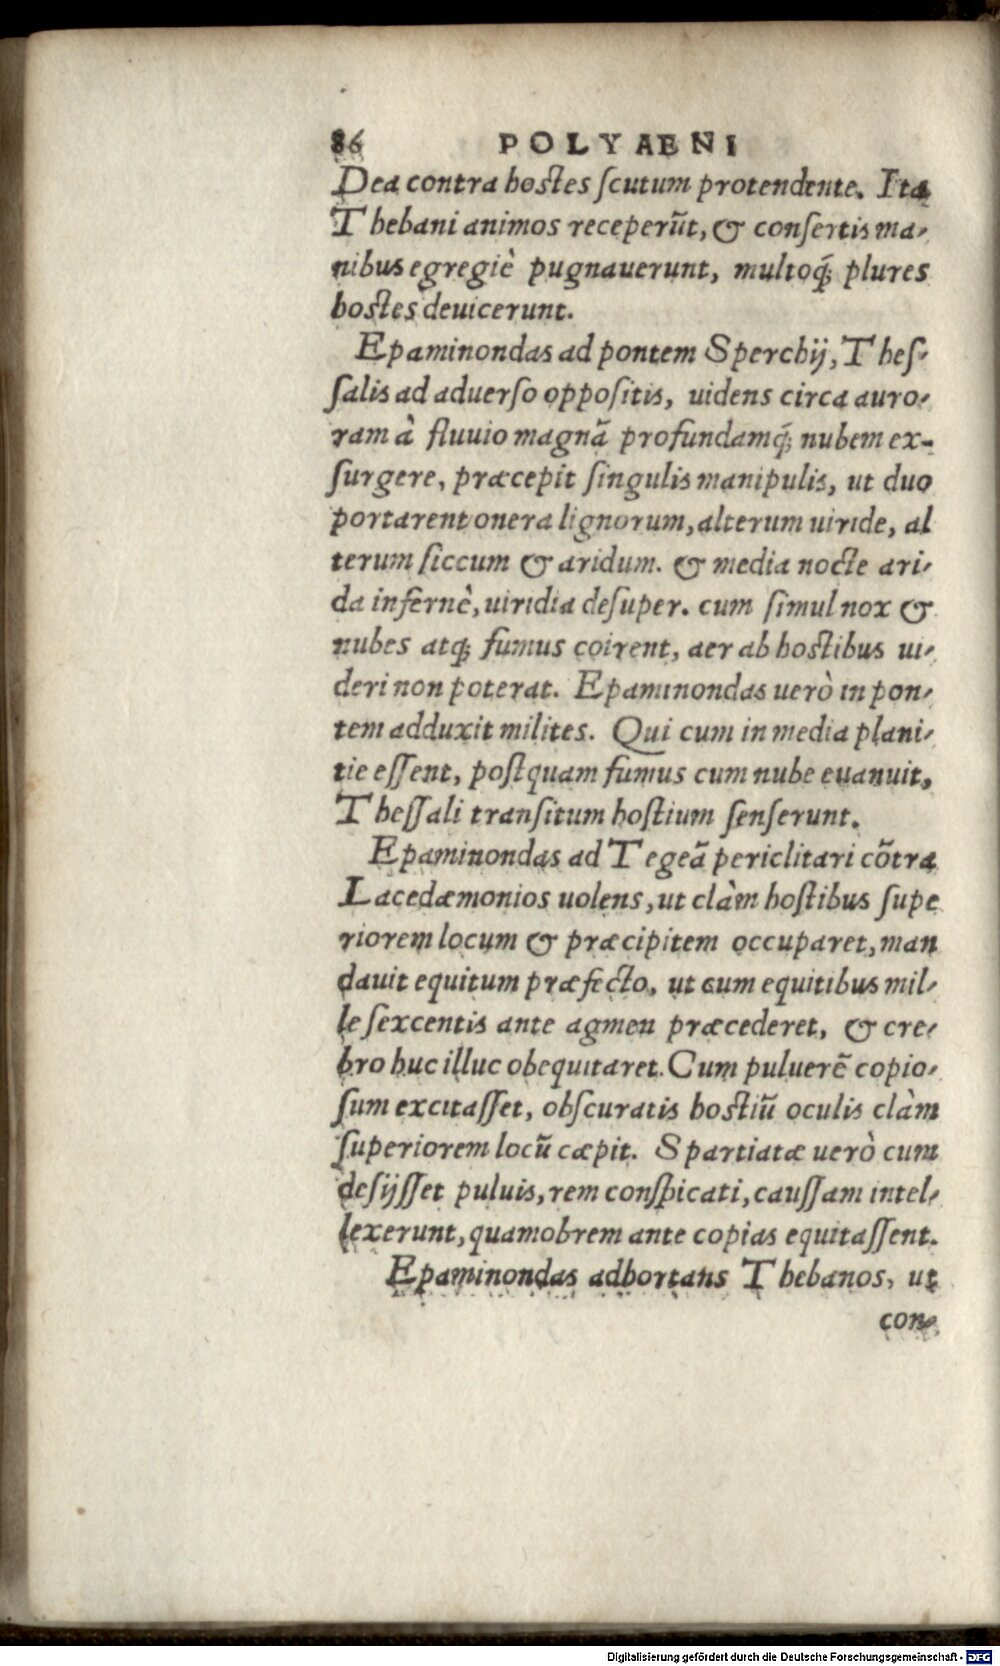 86 POLYAENI
Dea contra hostes scutum protendente. Ita
Thebani animos receperũt, & consertis ma-
nibus egregiè pugnauerunt, multoq́; plures
hostes deuicerunt.
Epaminondas ad pontem Sperchij, Thes-
salis ad aduerso oppositis, uidens circa auro-
ram à fluuio magnã profundamq́; nubem ex-
surgere, præcepit singulis manipulis, ut duo
portarent onera lignorum, alterum uiride, al
terum siccum & aridum. & media nocte ari-
da infernè, uiridia desuper. cum simul nox &
nubes atq; fumus coirent, aer ab hostibus ui-
deri non poterat. Epaminondas uerò in pon-
tem adduxit milites. Qui cum in media plani-
tie essent, postquam fumus cum nube euanuit,
Thessali transitum hostium senserunt.
Epaminondas ad Tegeã periclitari cõtra
Lacedæmonios uolens, ut clàm hostibus supe
riorem locum & præcipitem occuparet, man
dauit equitum præfecto, ut cum equitibus mil-
le sexcentis ante agmen præcederet, & cre-
bro huc illuc obequitaret. Cum puluerẽ copio-
sum excitasset, obscuratis hostiũ oculis clàm
superiorem locũ cæpit. Spartiatæ uerò cum
desijsset puluis, rem conspicati, caussam intel-
lexerunt, quamobrem ante copias equitassent.
Epaminondas adhortans Thebanos, ut
con-
Digitalisierung gefördert durch die Deutsche Forschungsgemeinschaft - DFG